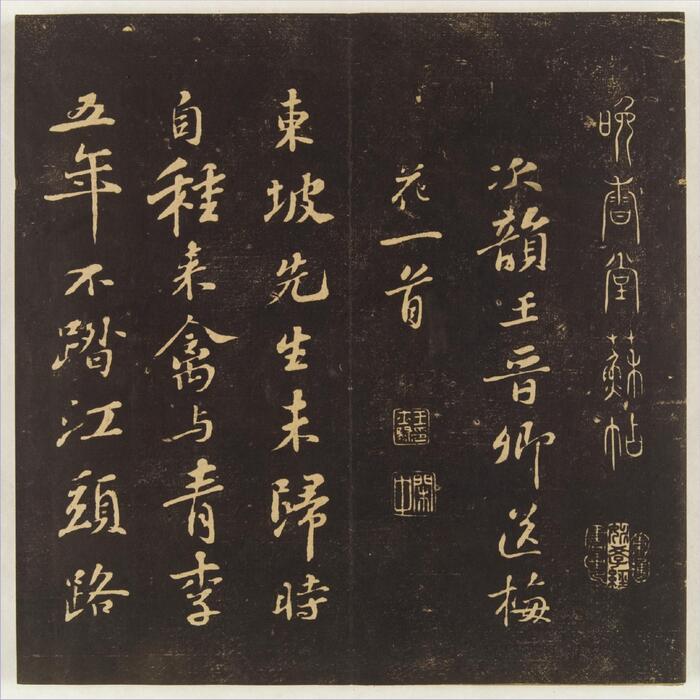 晚香堂蘇帖
次韻王晉卿送梅
花一首
東坡先生未歸時
自種来禽与青李
五年不踏江頭路